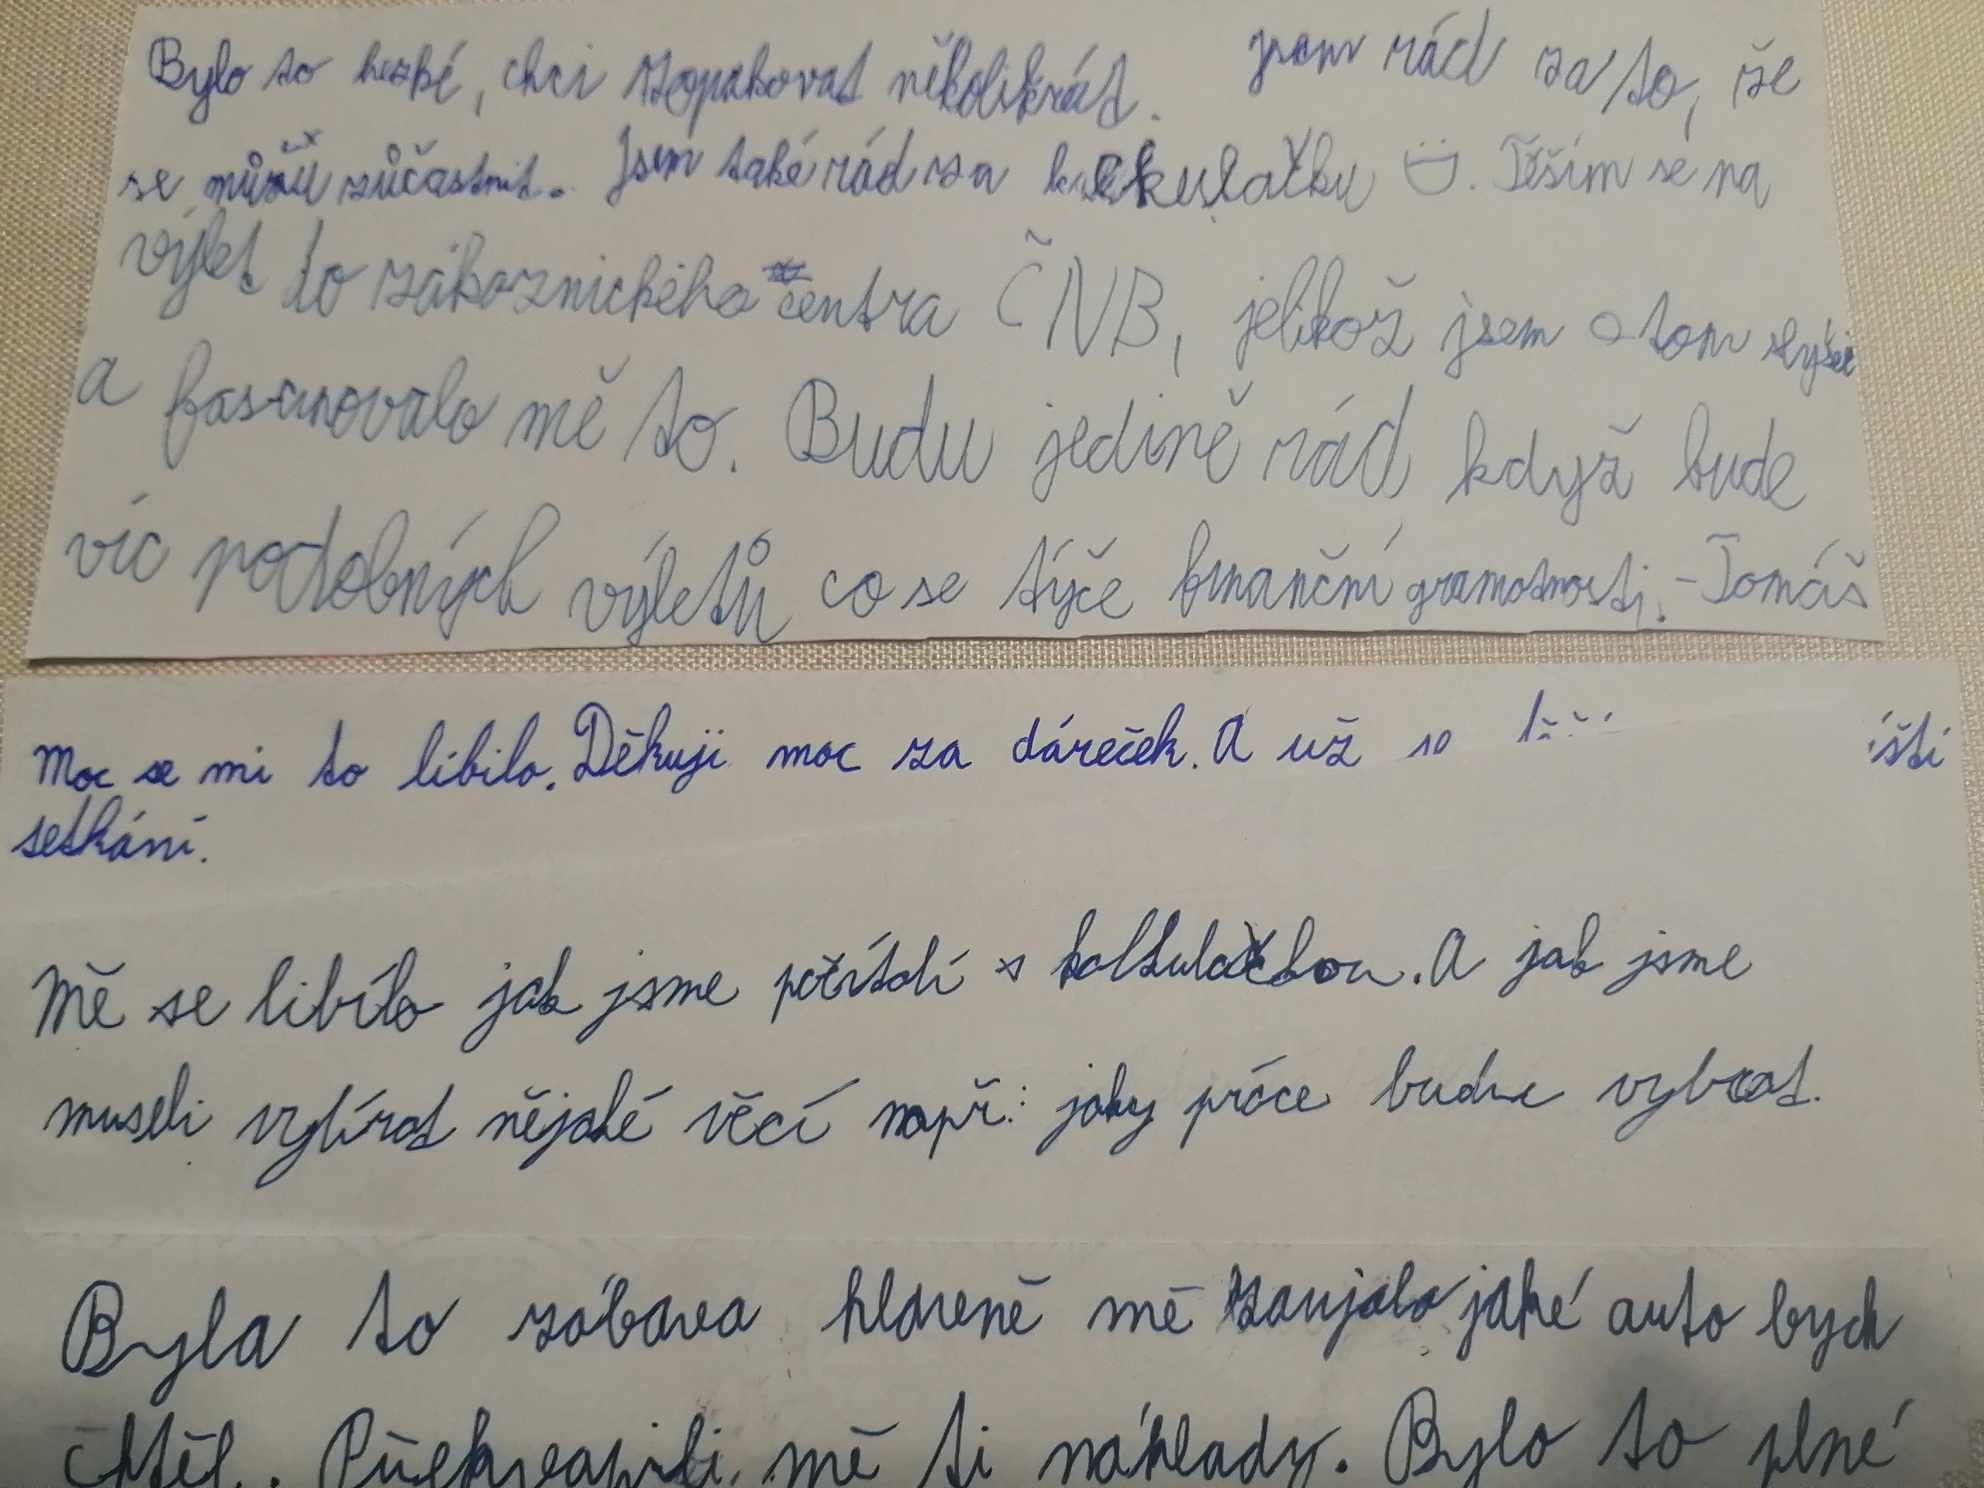 Bylo to hezké, chci zopakovat několikrát. jsem rád za to, že
se můžu zůčastnit. Jsem také rád za kalkulačku. Těším se na
výlet do zákaznického centra ČNB, jelikož jsem o tom slyšel
a fascinovalo mě to. Budu jedině rád když bude
víc podobných výletů co se týče finanční gramotnosti. - Tomáš
Moc se mi to libilo. Děkuji moc za dáreček. A už
setkání.
Mě se libílo jak jsme počítali s kalkulačkou. A jak jsme
museli vybírat nějaké věcí např: jaky práce budu vybrat.
Byla to zábava hlavně mě zaujalo jaké auto bych
chtěl. Překvapili mě ti náklady. Bylo to plné